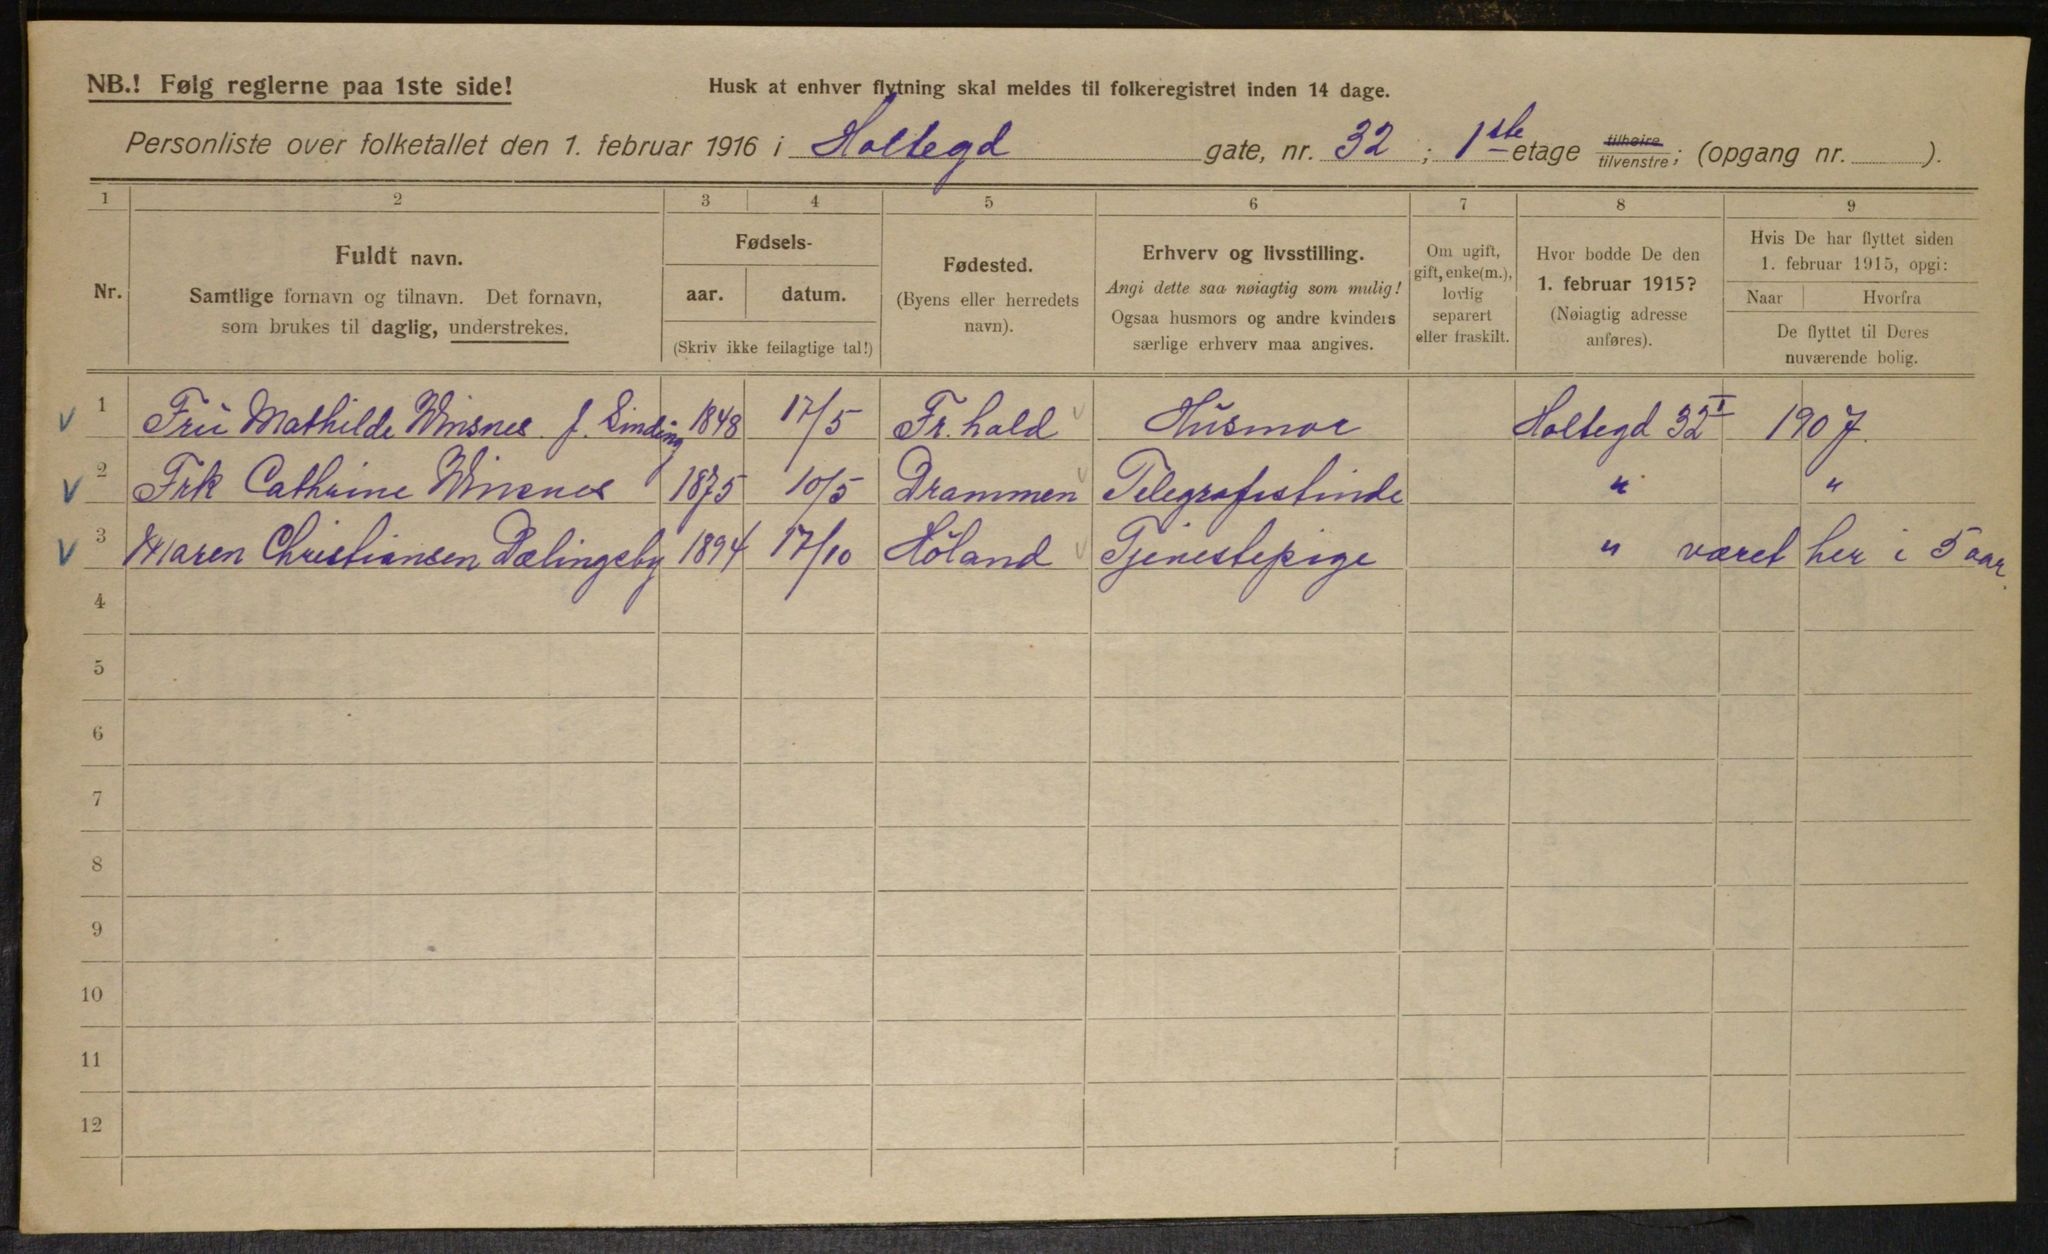 NB.! Følg reglerne paa 1ste side! Husk at enhver flytning skal meldes til folkeregistret inden 14 dage.
Personliste over folketallet den 1. februar 1916 i Holtegd gate, nr. 32 ; 1ste etage tilhøire tilvenstre; (opgang nr. ).
1 2 3 4 5 6 7 8 9
Nr.
Fuldt navn.
Samtlige fornavn og tilnavn. Det fornavn,
som brukes til daglig, understrekes.
Fødsels-
aar. datum.
(Skriv ikke feilagtige tal!)
Fødested.
(Byens eller herredets
navn).
Erhverv og livsstilling.
Angi dette saa nøiagtig som mulig!
Ogsaa husmors og andre kvinders
særlige erhverv maa angives.
Om ugift,
gift, enke(m.),
lovlig
separert
eller fraskilt.
Hvor bodde De den
1. februar 1915?
(Nøiagtig adresse
anføres).
Hvis De har flyttet siden
1. februar 1915, opgi:
Naar Hvorfra
De flyttet til Deres
nuværende bolig.
1 Fru Mathilde Winsnes f. Sinding 1848 17/5 Fr.hald Husmor Holtegd 32 I 1907.
2 Frk Cathrine Winsnes 1875 10/5 Drammen Telegrafistinde " "
3 Maren Christiansen Dælingsby 1894 17/10 Høland Tjenestepige " været her i 5 aar.
4
5
6
7
8
9
10
11
12